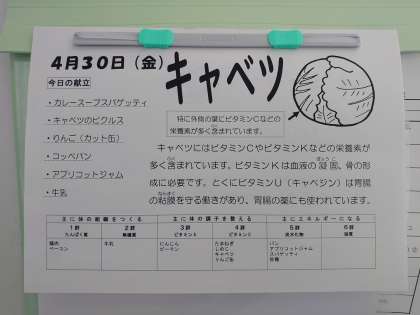 4月30日（金）
キャベツ
今日の献立
・カレースープスパゲッティ
・キャベツのピクルス
・りんご（カット缶）
・コッペパン
・アプリコットジャム
・牛乳
特に外側の葉にビタミンCなどの
栄養素が多く含まれています。
キャベツにはビタミンCやビタミンKなどの栄養素が
多く含まれています。ビタミンKは血液の凝固、骨の形
成に必要です。とくにビタミンU（キャベジン）は胃腸
の粘膜を守る働きがあり、胃腸の薬にも使われています。
主に体の組織をつくる 主に体の調子を整える 主にエネルギーになる
1群 2群 3群 4群 5群 6群
たんぱく質 無機質 ビタミンA ビタミンC 炭水化物 脂質
豚肉 牛乳 にんじん たまねぎ パン
ベーコン ピーマン しめじ アプリコットジャム
キャベツ スパゲティ
りんご缶 砂糖